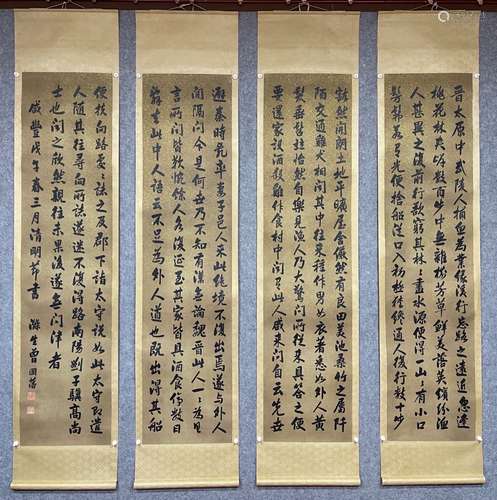 晉太原中武陵人捕魚為業緣溪行忘路之遠近忽逢
桃花林夾岸數百步中無雜樹芳草鮮美落英繽紛漁
人甚異之復前行欲窮其林林盡水源便得一山山有小口
髣髴若有光便捨船從口入初極狹纔通人復行數十步
豁然開朗土地平曠屋舍儼然有良田美池桑竹之屬阡
陌交通雞犬相聞其中往來種作男女衣著悉如外人黃
髮垂髫並怡然自樂見漁人乃大驚問所從來具答之便
要還家設酒殺雞作食村中聞有此人咸來問自云先世
避秦時亂率妻子邑人來此絕境不復出焉遂與外人
間隔問今是何世乃不知有漢無論魏晉此人一一為具
言所聞皆歎惋餘人各復延至其家皆具酒食停數日
辭去此中人語云不足為外人道也既出得其船
便扶向路處處誌之及郡下詣太守說如此太守即遣
人隨其往尋向所誌遂迷不復得路南陽劉子驥高尚
士也聞之欣然親往未果後遂無問津者
咸豐戊午春三月清明節書 滌生曾國藩